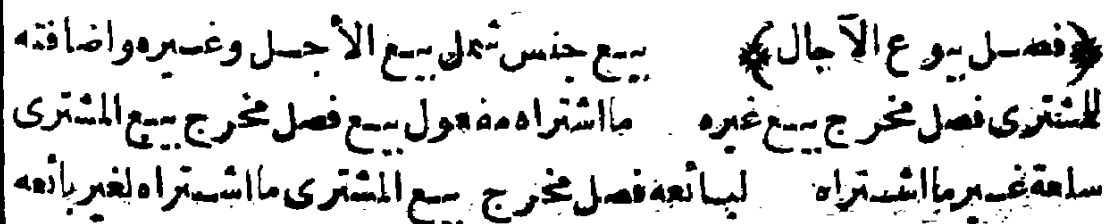 ﴿فصل بيوع الآجال﴾ بيع جنس شمل بيع الأجل وغيره واضافته
للمشترى فصل مخرج بيع غيره مااشتراه مفعول بيع فصل مخرج بيع المشترى
سلعة غير مااشتراه لبائعه فصل مخرج بيع المشترى مااشتراه لغير بائعه